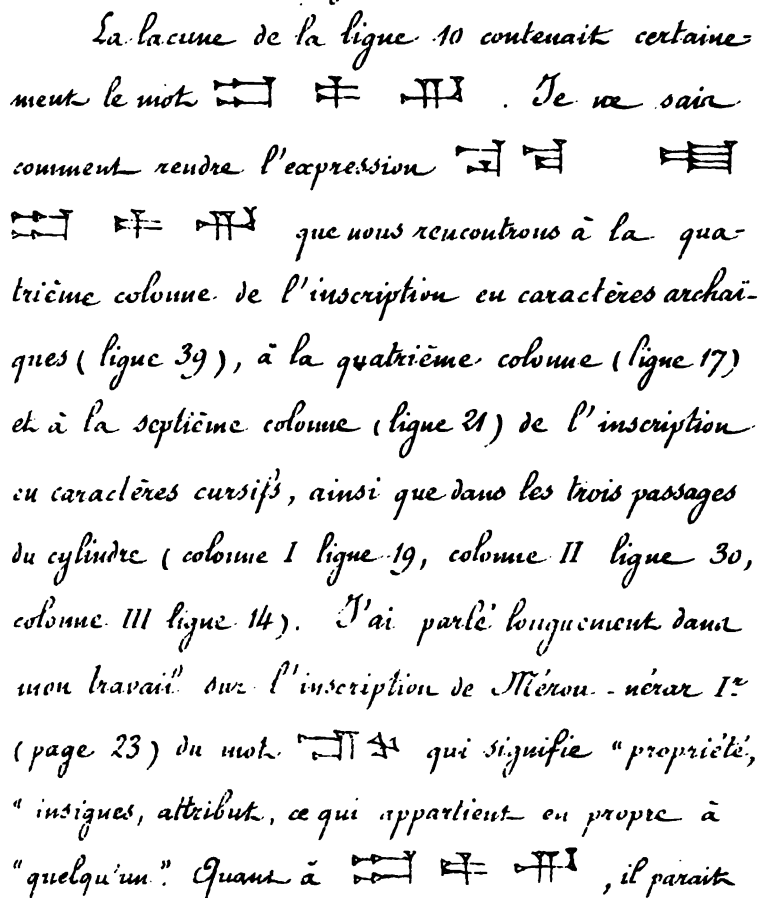 La lacune de la ligne 10 contenait certaine=
ment le mot . Je ne sais
comment rendre l'expression
que nous rencontrons à la qua-
trième colonne de l'inscription en caractères archaï-
ques (ligne 39), à la quatrième colonne (ligne 17)
et à la septième colonne (ligne 21) de l'inscription
en caractères cursifs, ainsi que dans les trois passages
du cylindre (colonne I ligne 19, colonne II ligne 30,
colonne III ligne 14). J'ai parlé longuement dans
mon travail sur l'inscription de Mérou-nérar Iᵉʳ
(page 23) du mot qui signifie "propriété,
"insignes, attribut, ce qui appartient en propre à
"quelqu'un". Quant à , il parait